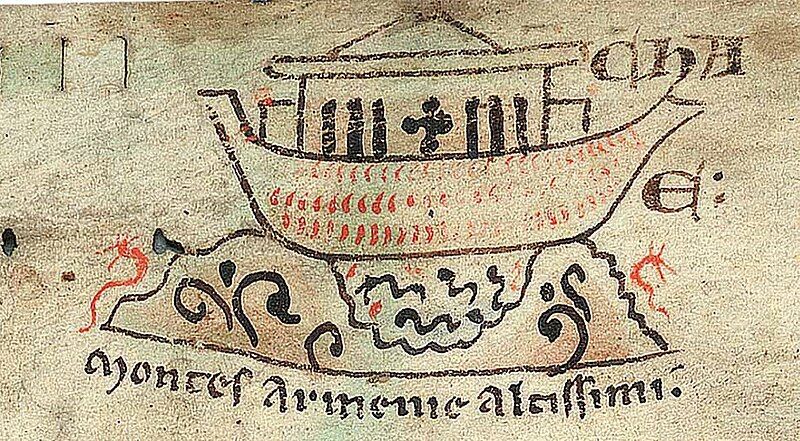 CHA
E:
Montes Armenie altissimi: